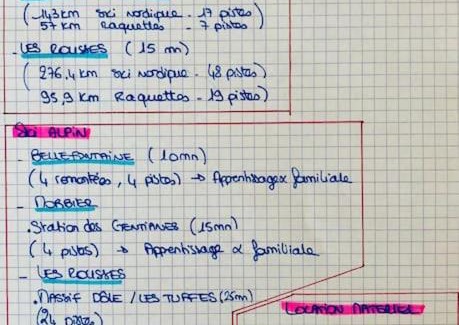 (143 km Ski nordique - 17 pistes
57 km Raquettes - 7 pistes)
- LES ROUSSES (15 mn)
(276,4 km ski nordique - 48 pistes)
95,9 km Raquettes - 19 pistes)
Ski ALPIN
- BELLEFONTAINE (10mn)
(4 remontées, 4 pistes) → Apprentissage & familiale
- MORBIER
. Station des GENTIANES (15mn)
(4 pistes) → Apprentissage & familiale
- LES ROUSSES
. MASSIF DÔLE / LES TUFFES (25mn)
(24 pistes)
LOCATION MATERIEL